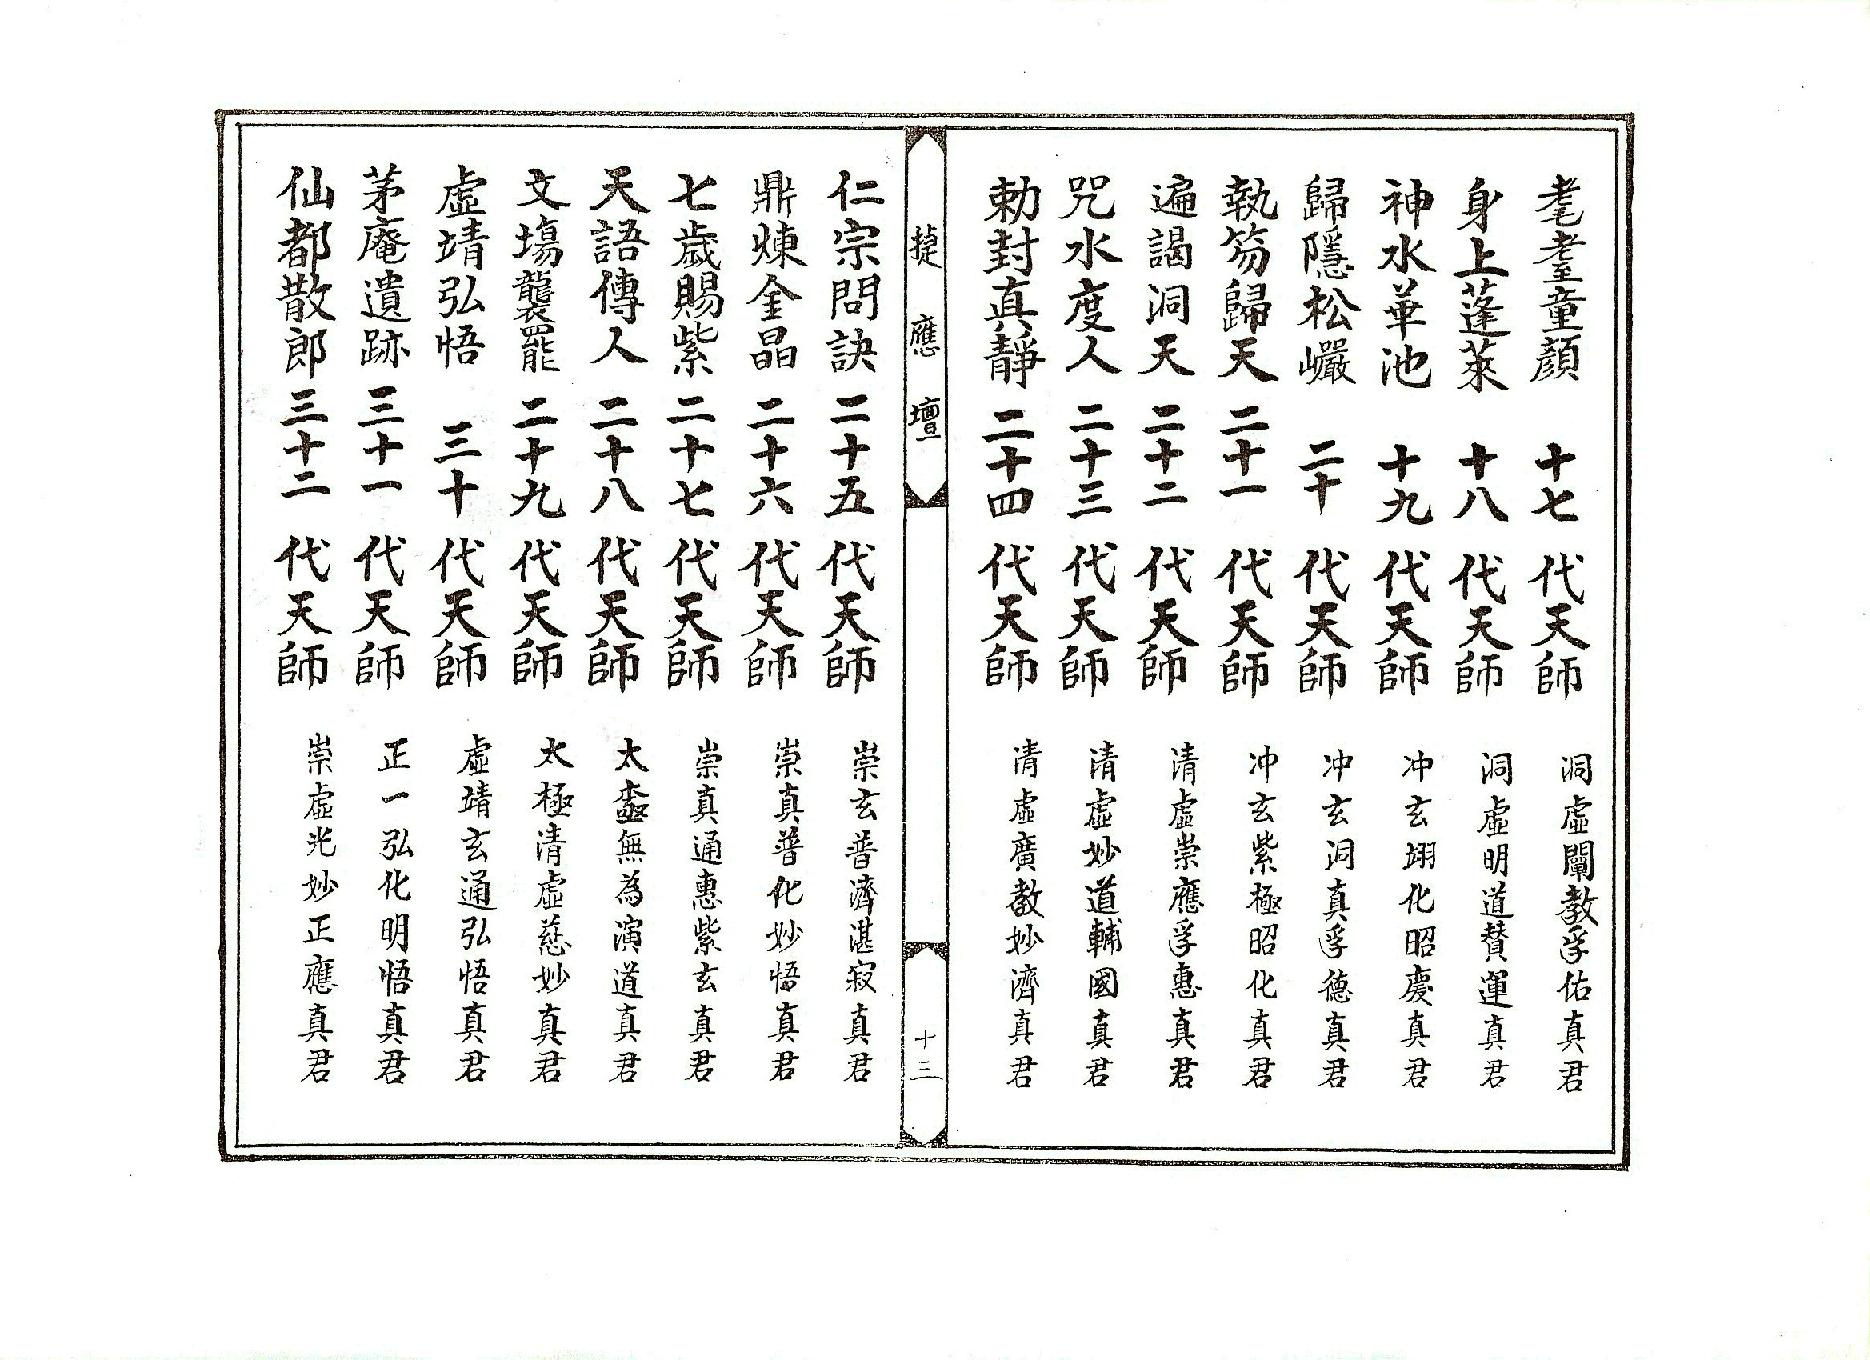 耄耋童顏 十七 代天師 洞虛闡教孚佑真君
身上蓬萊 十八 代天師 洞虛明道贊運真君
神水華池 十九 代天師 冲玄翊化昭慶真君
歸隱松巖 二十 代天師 冲玄洞真孚德真君
執笏歸天 二十一 代天師 冲玄紫極昭化真君
遍謁洞天 二十二 代天師 清虛崇應孚惠真君
咒水度人 二十三 代天師 清虛妙道輔國真君
勅封真靜 二十四 代天師 清虛廣教妙濟真君
捷應壇 十三
仁宗問訣 二十五 代天師 崇玄普濟湛寂真君
鼎煉金晶 二十六 代天師 崇真普化妙悟真君
七歲賜紫 二十七 代天師 崇真通惠紫玄真君
天語傳人 二十八 代天師 太無為演道真君
文塲襲罷 二十九 代天師 太極清虛慈妙真君
虛靖弘悟 三十 代天師 虛靖玄通弘悟真君
茅庵遺跡 三十一 代天師 正一弘化明悟真君
仙都散郎 三十二 代天師 崇虛光妙正應真君